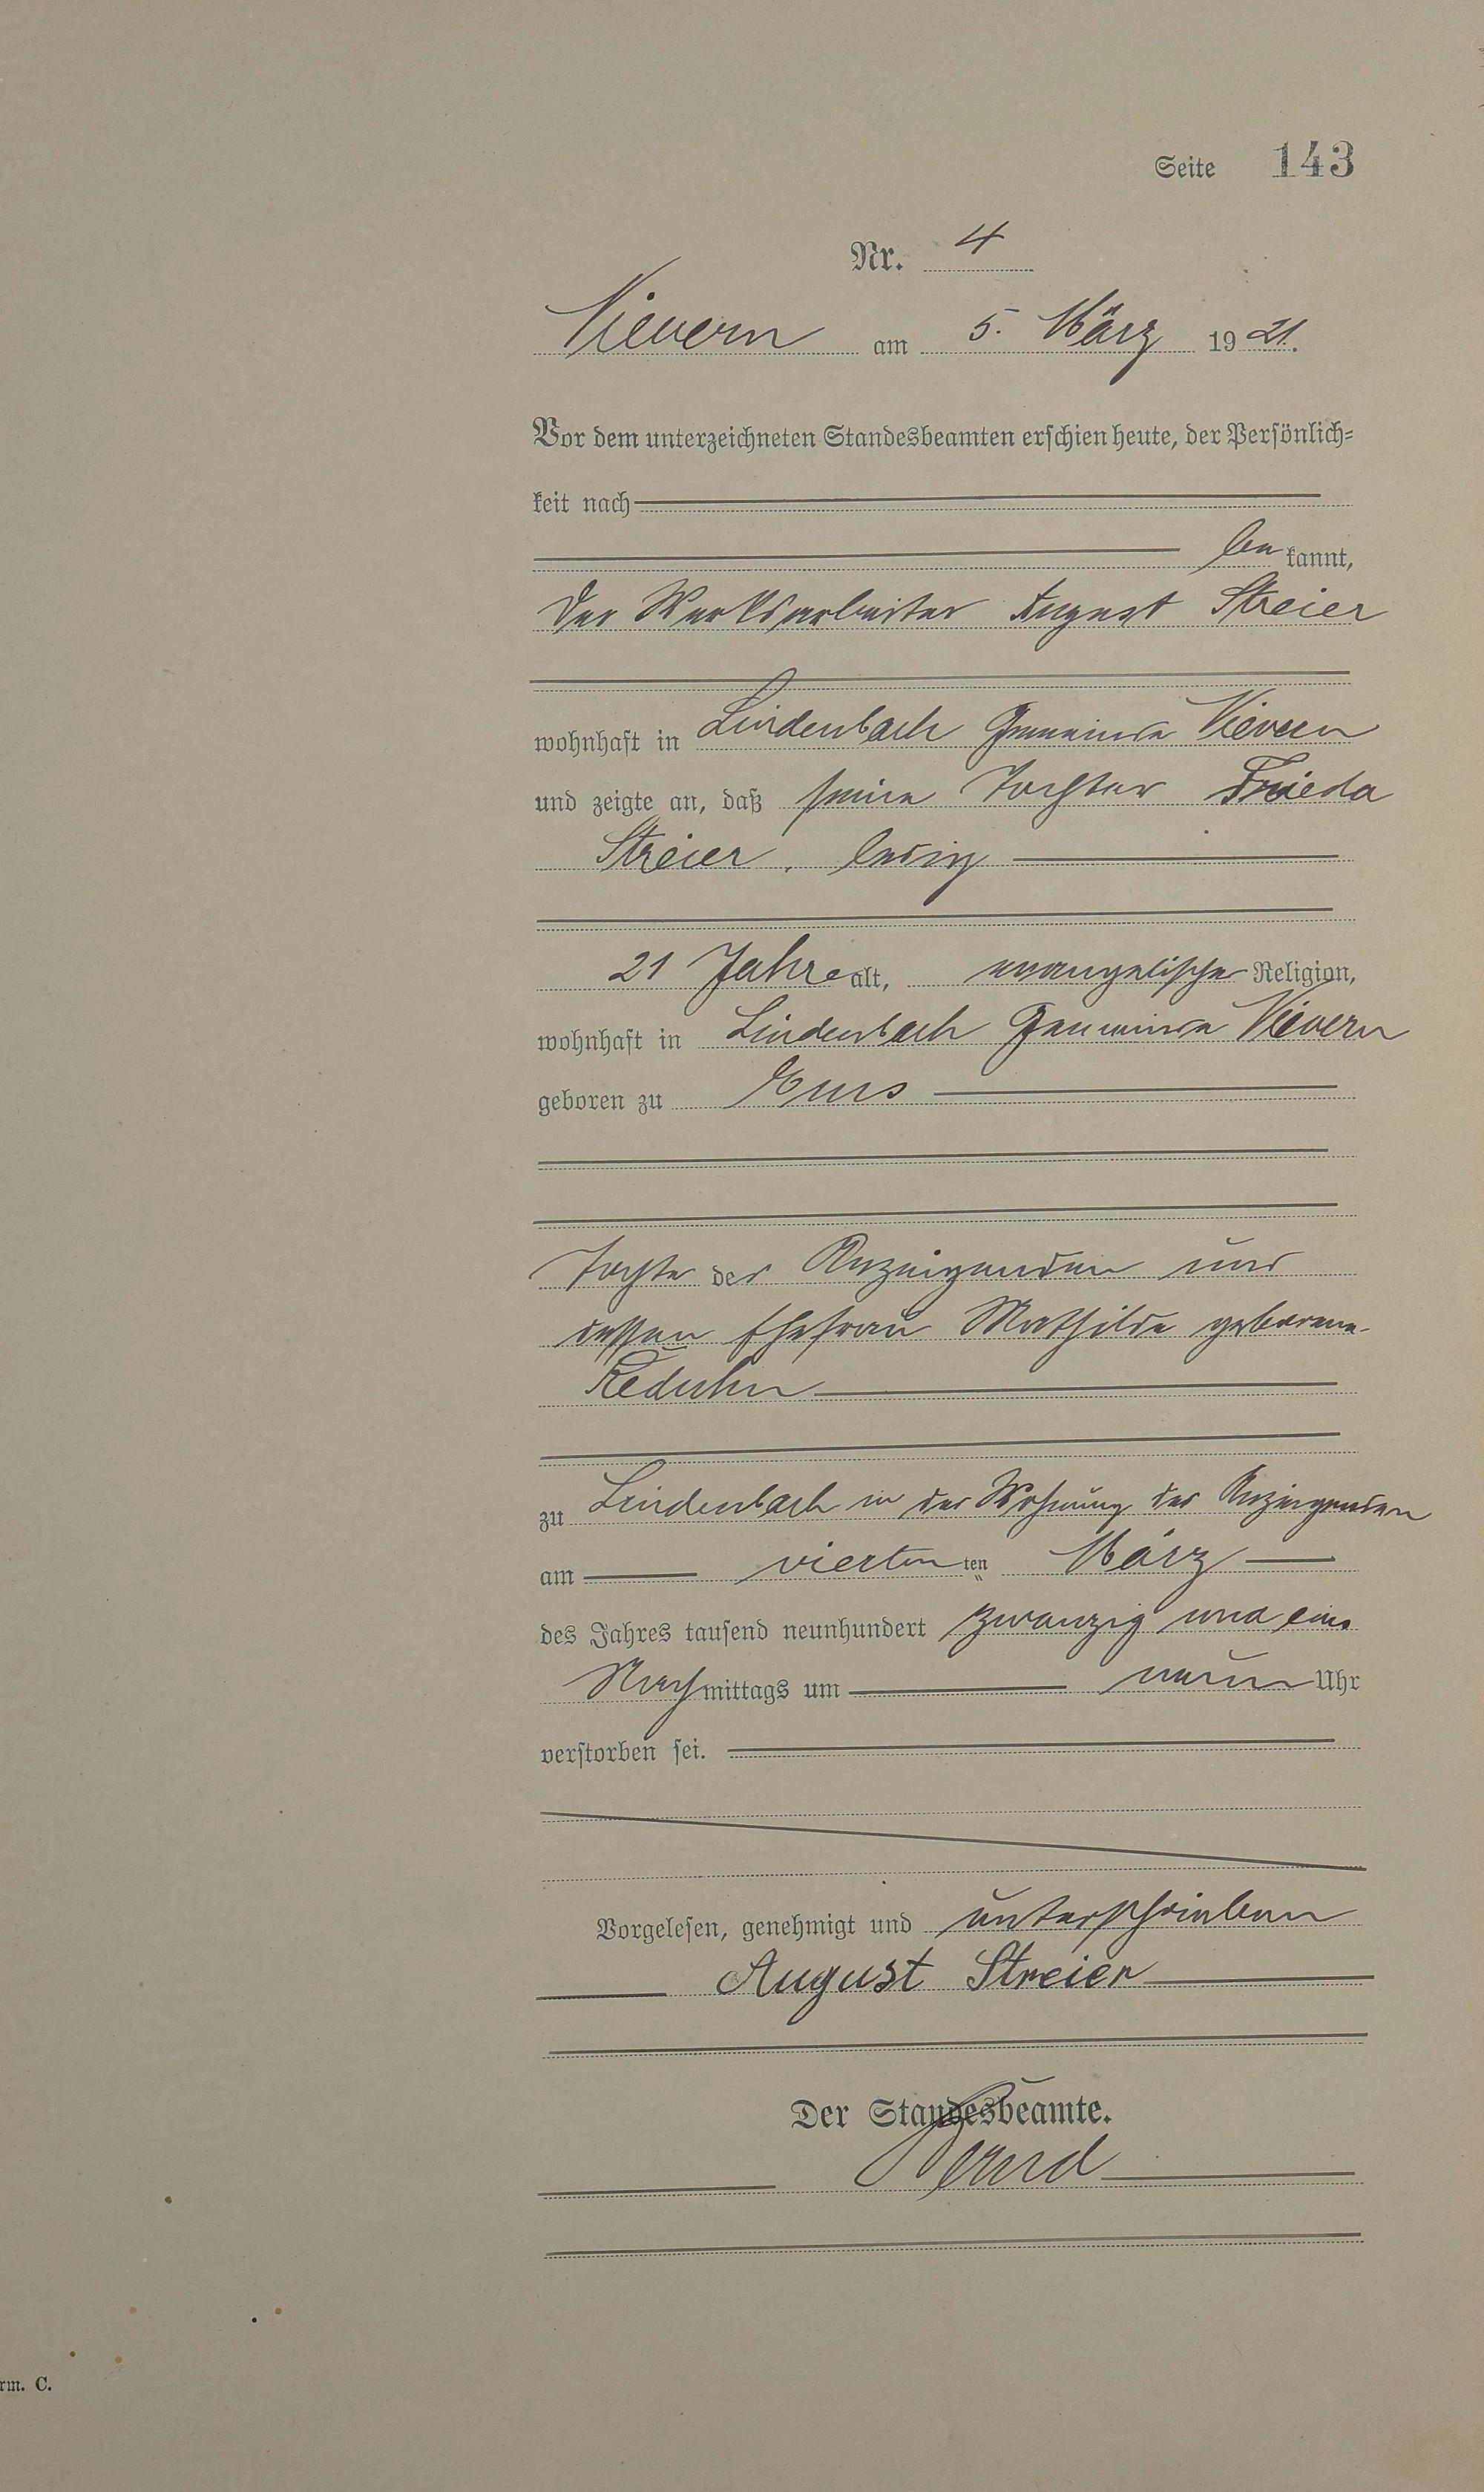 Seite 143
Nr. 4
Nievern am 5. März 1921.
Vor dem unterzeichneten Standesbeamten erschien heute, der Persönlich=
keit nach
bekannt,
der Werksarbeiter August Streier
wohnhaft in Lindenbach Gemeinde Nievern
und zeigte an, daß seine Tochter Frieda
Streier, ledig
21 Jahre alt, evangelischer Religion,
wohnhaft in Lindenbach Gemeinde Nievern
geboren zu Ems
Tochter des Anzeigenden und
dessen Ehefrau Mathilde geborene
Keduhn
zu Lindenbach in der Wohnung des Anzeigenden
am vierten ten März
des Jahres tausend neunhundert zwanzig und eins
Nachmittags um neun Uhr
verstorben sei.
Vorgelesen, genehmigt und unterschrieben
August Streier
Der Standesbeamte.
rm. C.